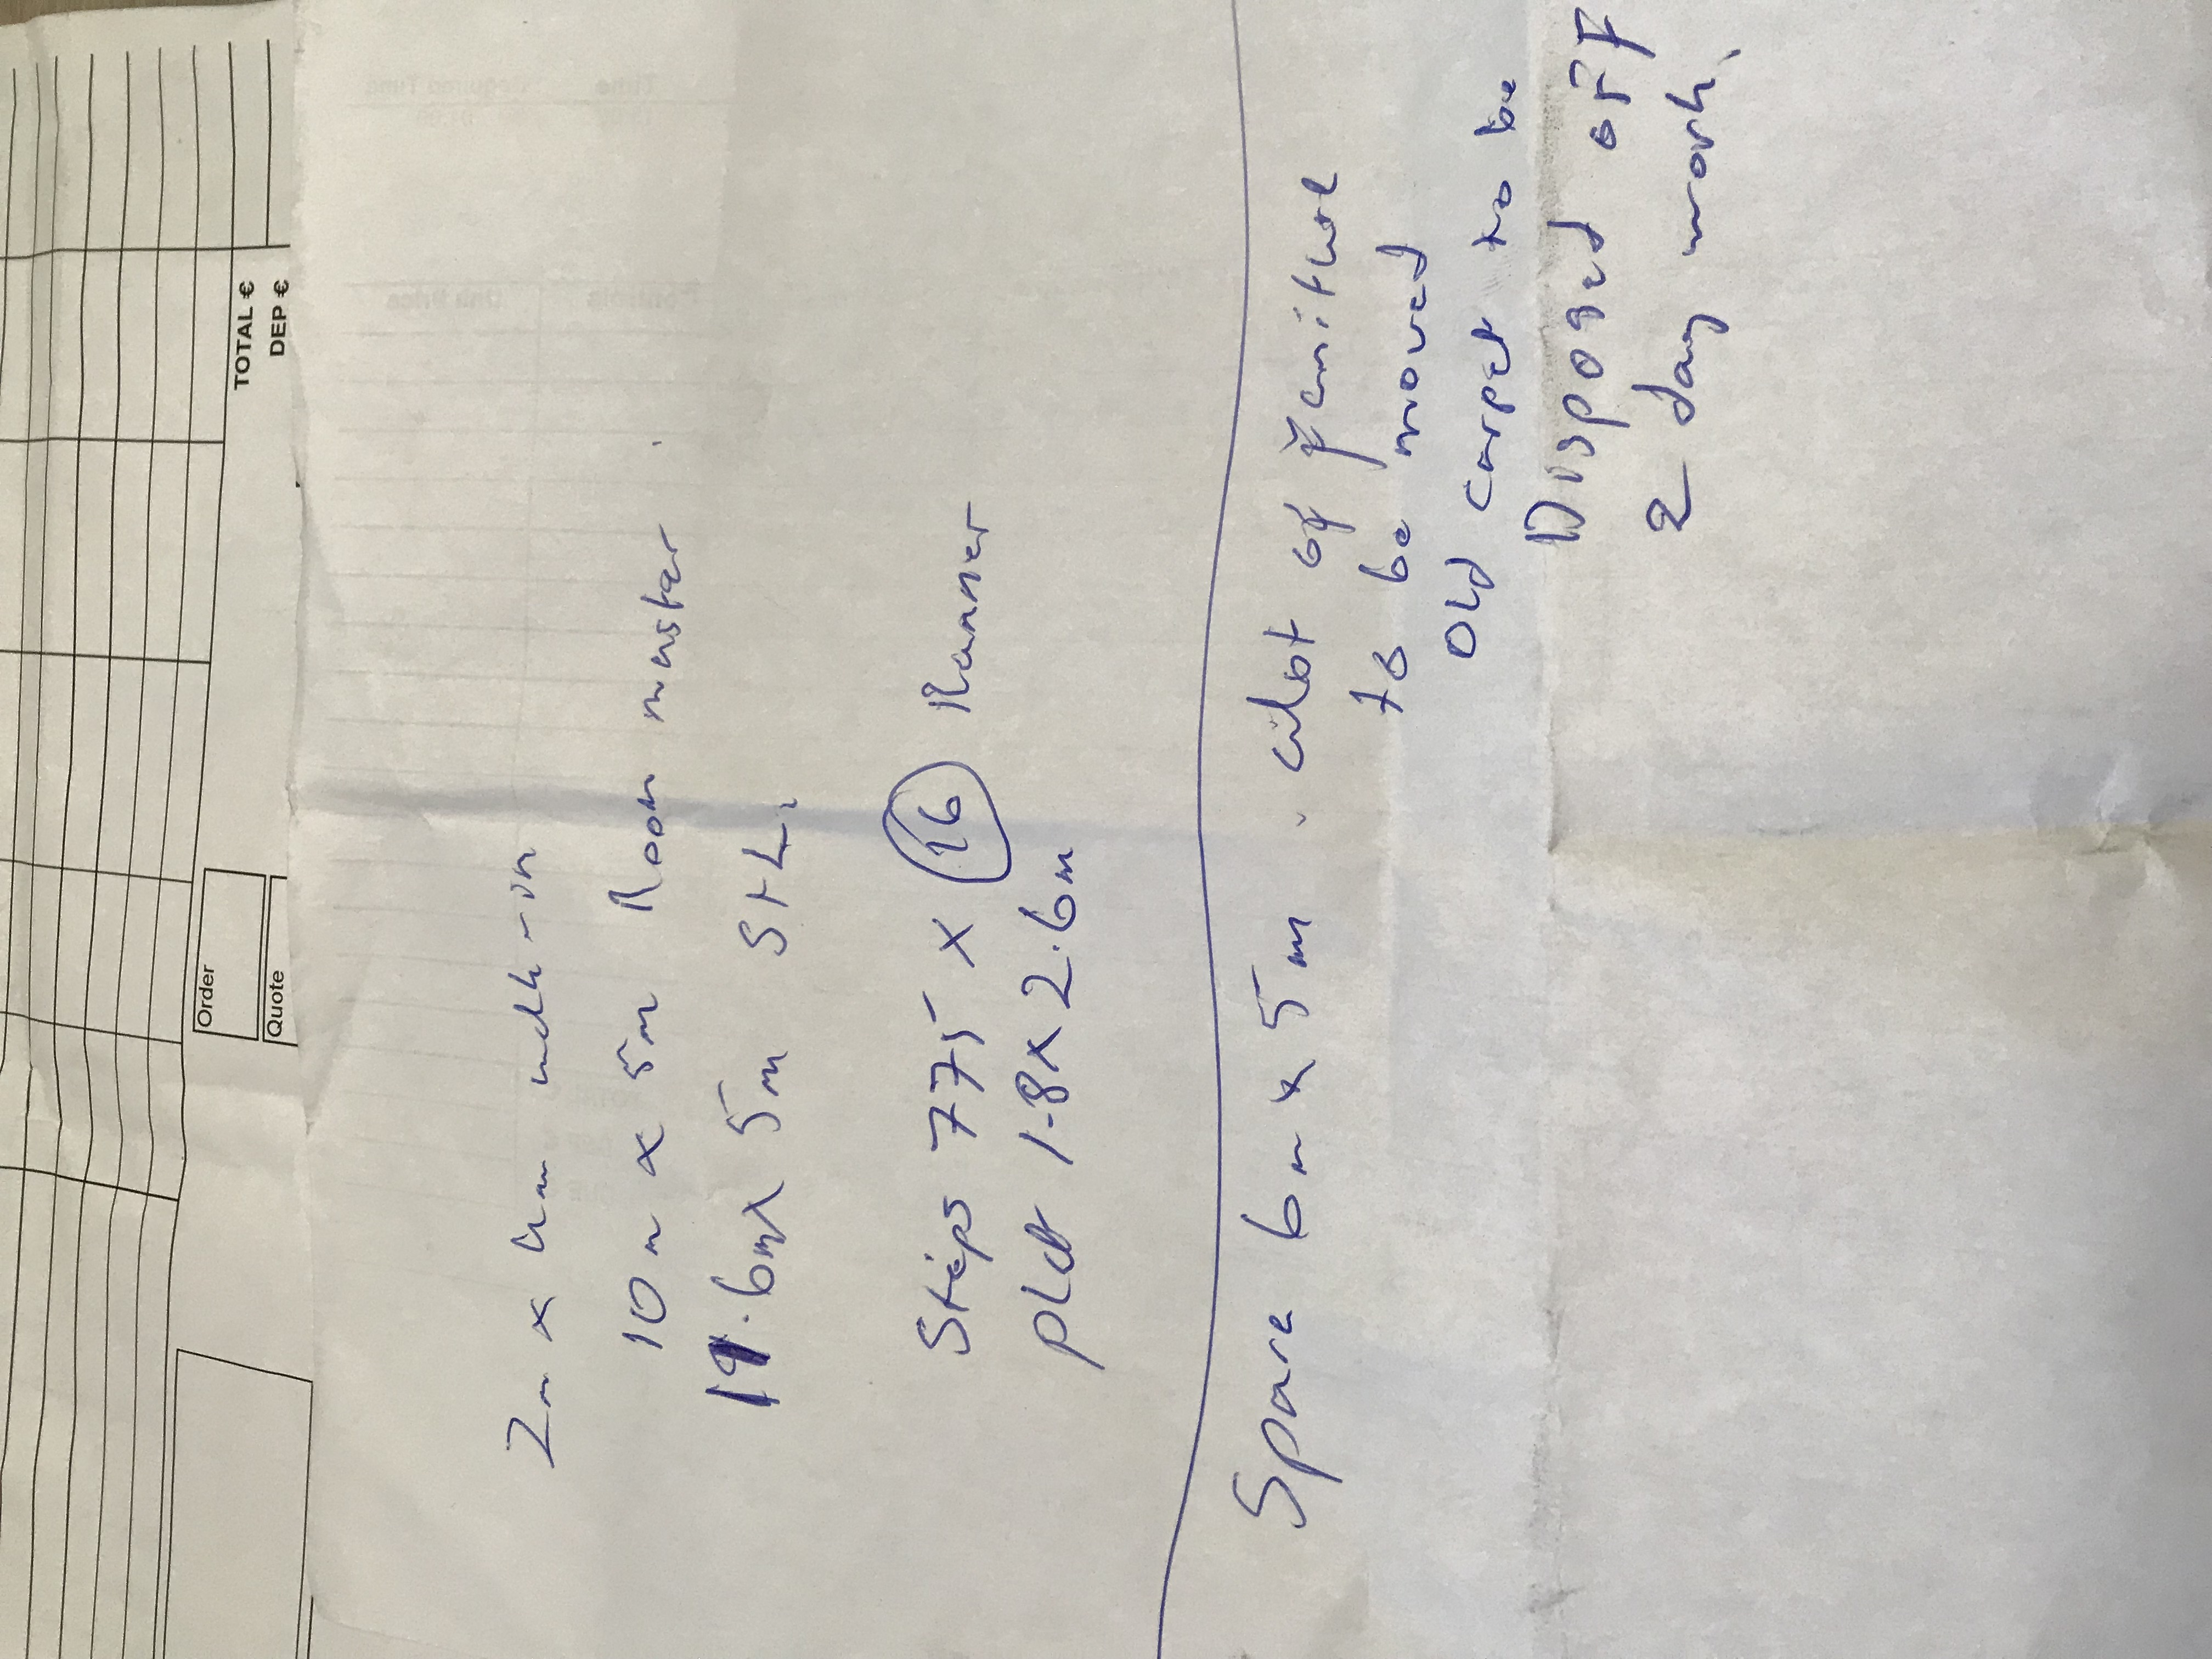 TOTAL €
DEP €
Order
Quote
2m x 4m walk-in
10m x 5m Room master
.6m x 5m S+L.
Steps 775 x 16 Runner
PLet 1.8 x 2.6m
Spare 6m x 5m . alot of furniture
to be moved
Old carpet to be
Disposed off
2 day work.